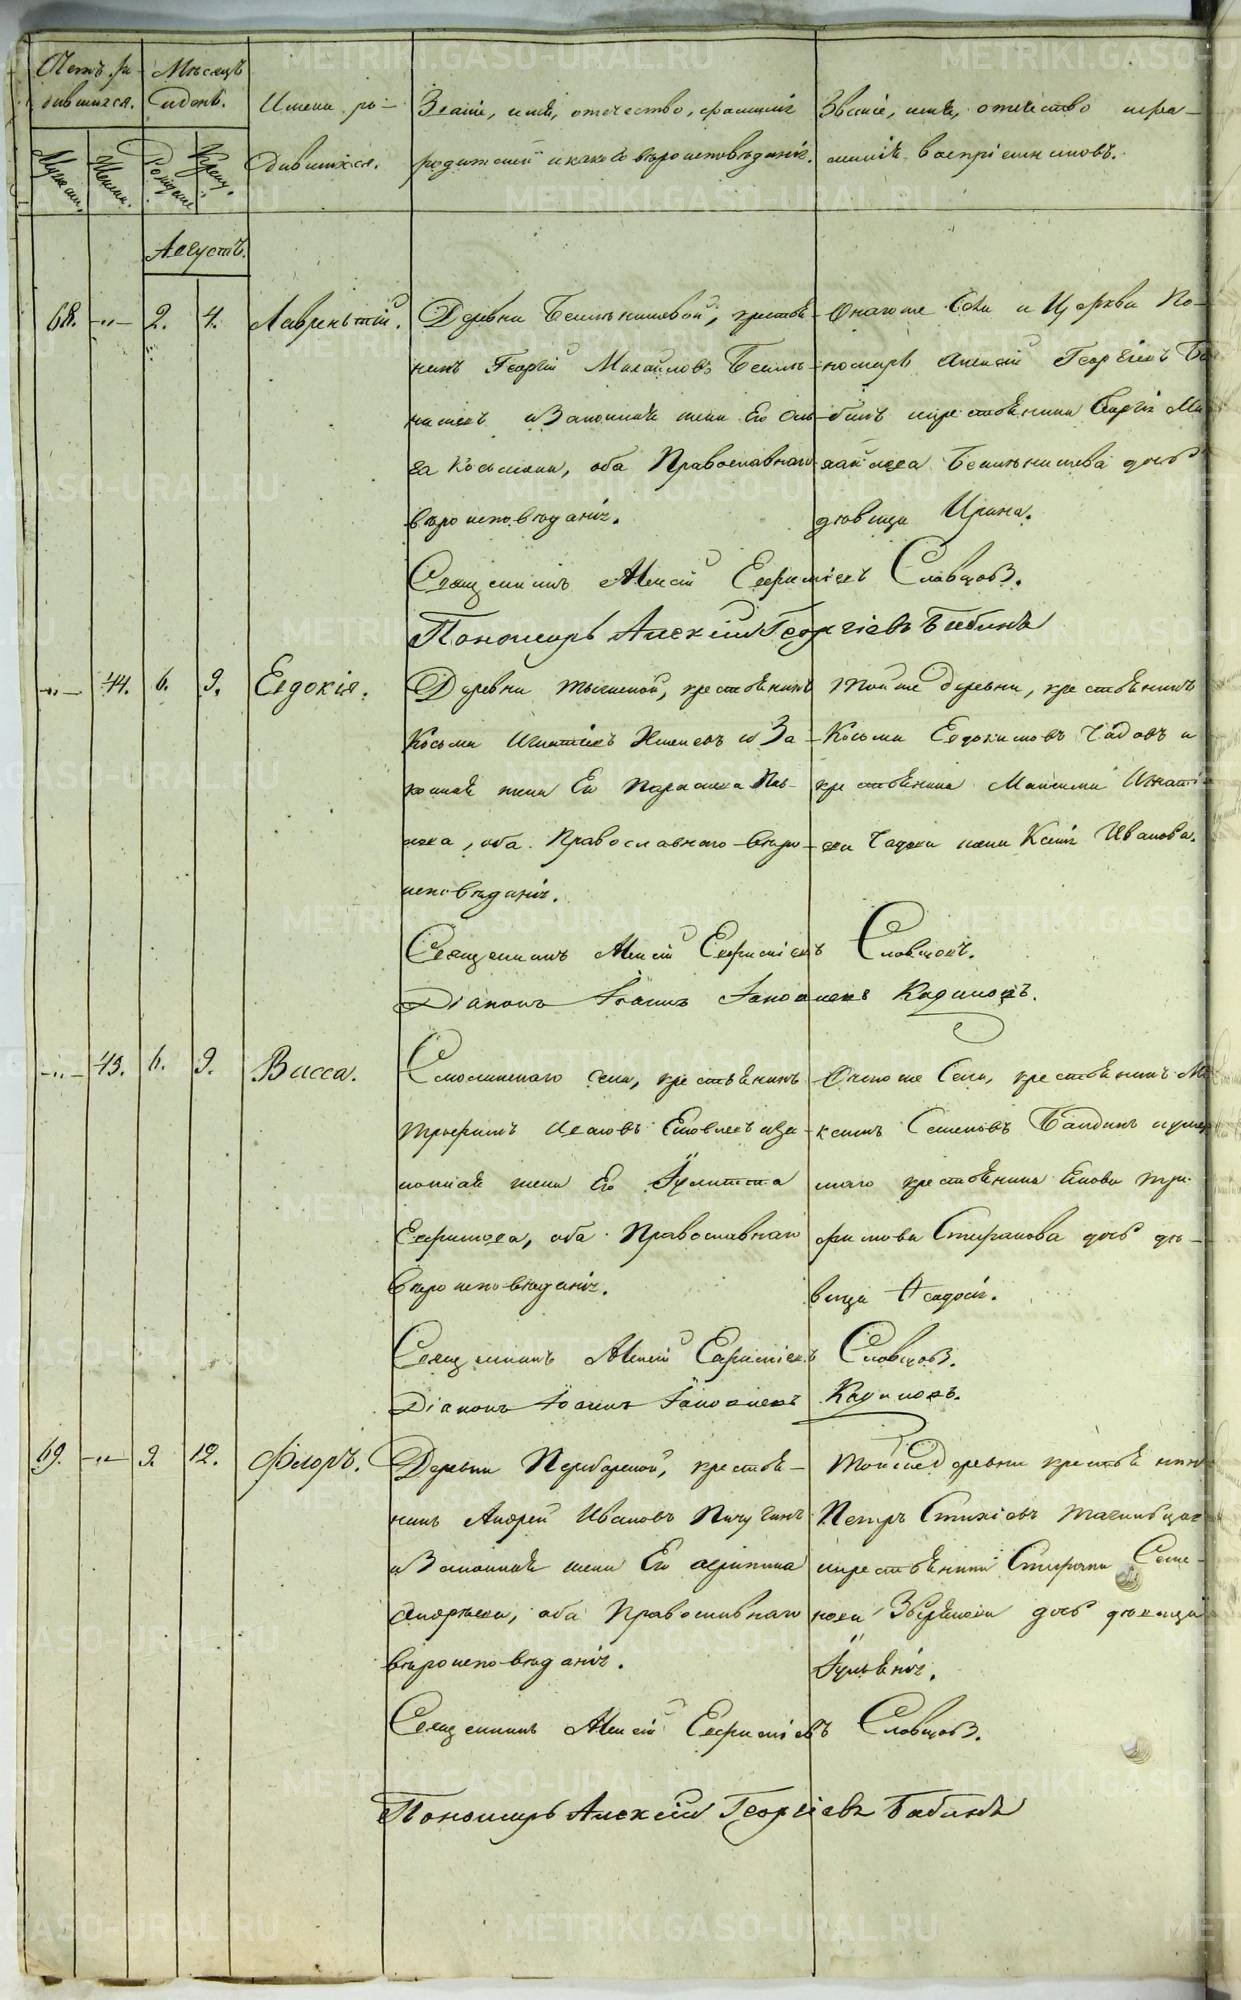 Счетъ ро-
дившихся.
Мѣсяцъ
и день.
Имена ро-
дившихся.
Званіе, имя, отечество, фамилія
родителей и какого вѣроисповѣданія.
Званіе, имя, отчество и фа-
милія воспріемниковъ.
Мужескъ.
Женска.
Рожденія
Крещ.
Августъ.
68. -"- 2. 4. Лаврентій.
Деревни крестья-
нинъ Георгій Михайловъ
и Законная жена Его
Козьмина, оба Православнаго
вѣроисповѣданія.
Онагоже Села и Церкви По-
номарь Алексій Георгіевъ Ба-
бинъ и крестьянина Георгія Ми-
хайлова дочь
дѣвица Ирина.
Священникъ Алексій Евфиміевъ Словцовъ.
Пономарь Алексій Георгіевъ Бабинъ
-"- 44. 6. 9. Евдокія.
Деревни крестьянинъ
Козьма Игнатіевъ и За-
конная жена Его Параскева
оба Православнаго вѣро-
исповѣданія.
Тойже деревни, крестьянинъ
Козьма Евдокимовъ Чадовъ и
крестьянина Максима Игнатіе-
ва Чадова жена Ксенія Иванова.
Священникъ Алексій Евфиміевъ Словцовъ.
Діаконъ Іоаннъ Іаковлевъ Кадиловъ.
-"- 45. 6. 9. Васса.
Смолинскаго села, крестьянинъ
Трофимъ Исаковъ и за-
конная жена Его Іулитта
Ефимова, оба Православнаго
вѣроисповѣданія.
Онагоже Села, крестьянинъ Ма-
ксимъ Семеновъ Бандинъ и умер-
шаго крестьянина Якова Тро-
фимова Стефанова дочь дѣ-
вица Ѳеодосія.
Священникъ Алексій Евфиміевъ Словцовъ.
Діаконъ Іоаннъ Іаковлевъ Кадиловъ.
69. -"- 9. 12. Флоръ.
Деревни Переборской, крестья-
нинъ Андрей Ивановъ Пичугинъ
и Законная жена Его Агрипина
Андреева, оба Православнаго
вѣроисповѣданія.
Тойже Деревни крестьянинъ
Петръ
и крестьянина Стефана Семе-
нова Звѣрева дочь дѣвица
Іуліанія.
Священникъ Алексій Евфиміевъ Словцовъ.
Пономарь Алексій Георгіевъ Бабинъ
METRIKI.GASO-URAL.RU